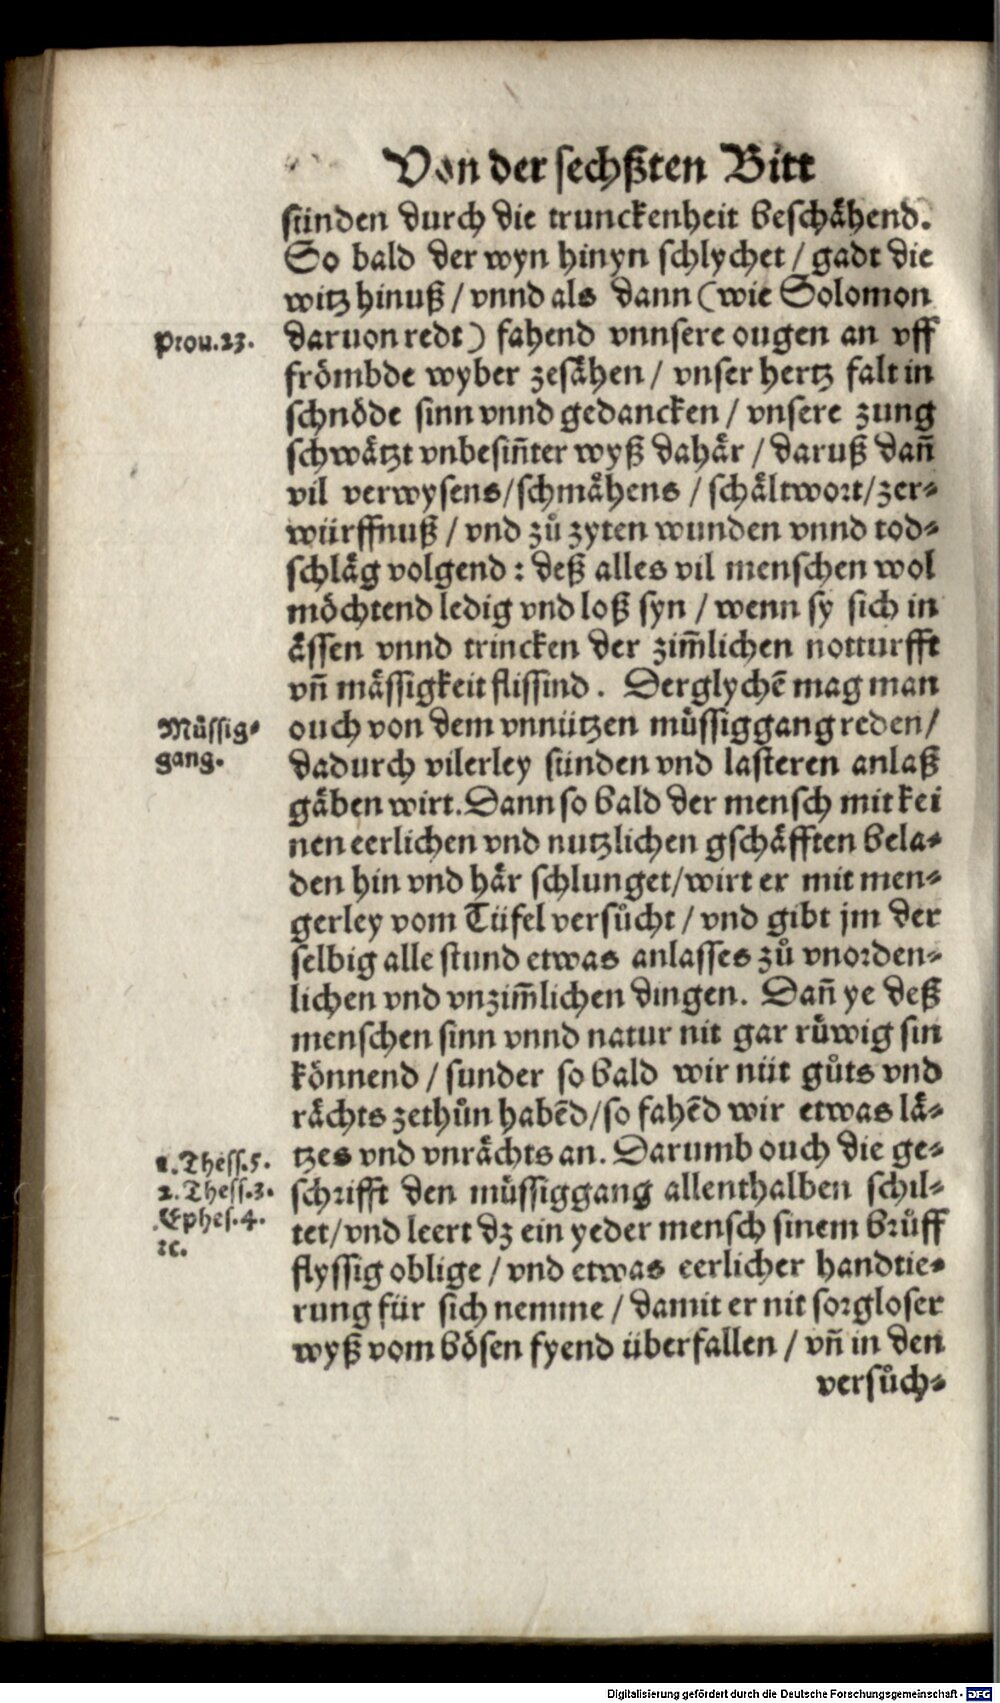 Von der sechßten Bitt
sünden durch die trunckenheit beschähend.
So bald der wyn hinyn schlychet / gadt die
witz hinuß / vnnd als dann (wie Solomon
Prou.23.
daruon redt) fahend vnnsere ougen an vff
frömbde wyber zesähen / vnser hertz falt in
schnöde sinn vnnd gedancken / vnsere zung
schwätzt vnbesiñter wyß dahär / daruß dañ
vil verwysens / schmähens / schältwort / zer-
würffnuß / vnd zů zyten wunden vnnd tod-
schläg volgend : deß alles vil menschen wol
möchtend ledig vnd loß syn / wenn sy sich in
ässen vnnd trincken der zim̃lichen notturfft
vñ mässigkeit flissind . Derglychẽ mag man
Müssig-
gang.
ouch von dem vnnützen müssiggang reden /
dadurch vilerley sünden vnd lasteren anlaß
gäben wirt. Dann so bald der mensch mit kei
nen eerlichen vnd nutzlichen gschäfften bela-
den hin vnd här schlunget / wirt er mit men-
gerley vom Tüfel versůcht / vnd gibt jm der
selbig alle stund etwas anlasses zů vnorden-
lichen vnd vnzim̃lichen dingen. Dañ ye deß
menschen sinn vnnd natur nit gar rüwig sin
könnend / sunder so bald wir nüt gůts vnd
rächts zethůn habẽd / so fahẽd wir etwas lä-
1.Thess.5.
2.Thess.3.
Ephes.4.
ꝛc.
tzes vnd vnrächts an. Darumb ouch die ge-
schrifft den müssiggang allenthalben schil-
tet / vnd leert dz ein yeder mensch sinem brůff
flyssig oblige / vnd etwas eerlicher handtie-
rung für sich nemme / damit er nit sorgloser
wyß vom bösen fyend überfallen / vñ in den
versůch-
Digitalisierung gefördert durch die Deutsche Forschungsgemeinschaft - DFG